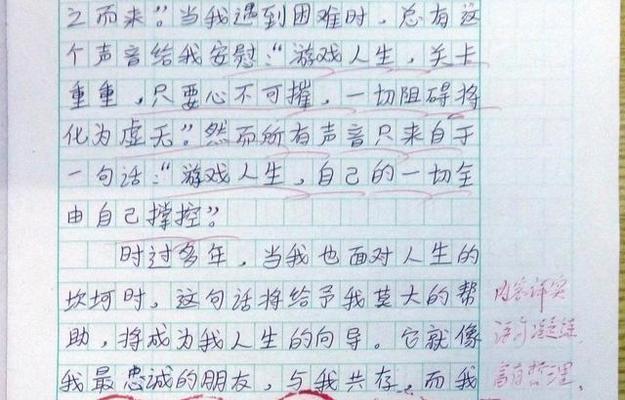 之而来”。当我遇到困难时，总有这
个声音给我安慰：“游戏人生，关卡
重重，只要心不可摧，一切阻碍将
化为虚无”。然而所有声音只来自于
一句话：“游戏人生，自己的一切全
由自己撑控”。
时过多年，当我也面对人生的
坎坷时，这句话将给予我莫大的帮
内容详实
助，将成为我人生的向导。它就像
语句凝练
我最忠诚的朋友，与我共存，而我
富有哲理。